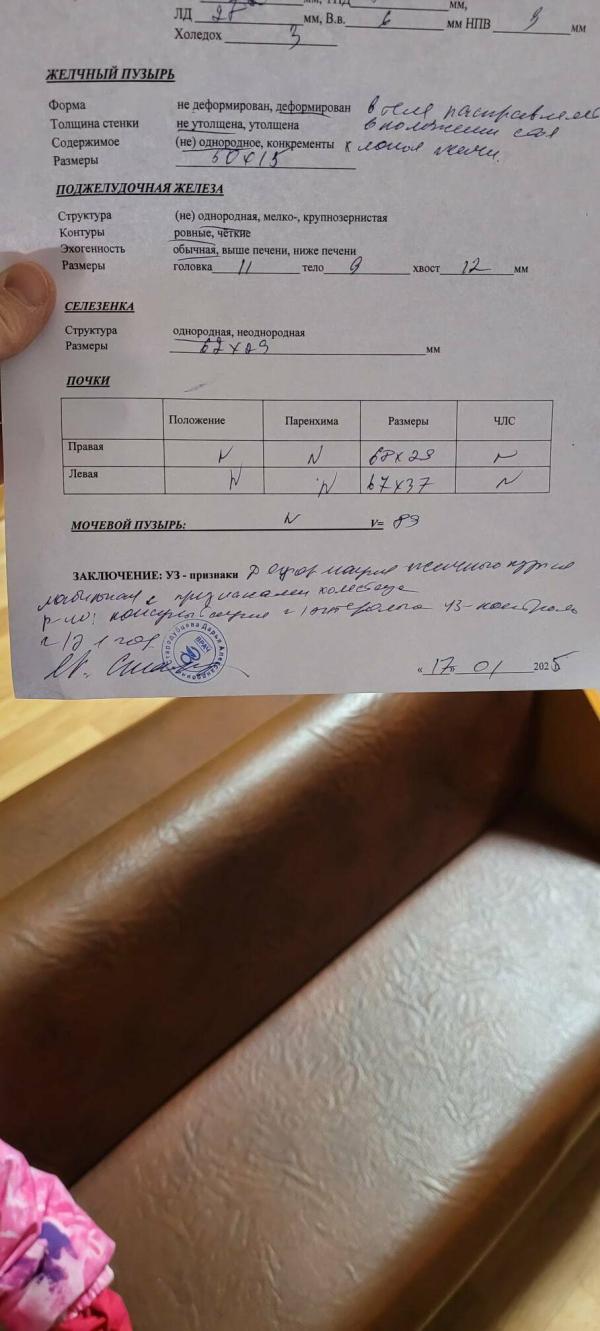 мм,
ЛД 28 мм, В.в. 6 мм НПВ 9 мм
Холедох 3
ЖЕЛЧНЫЙ ПУЗЫРЬ
Форма не деформирован, деформирован в теле
Толщина стенки не утолщена, утолщена в положении
Содержимое (не) однородное, конкременты
Размеры 50х15
ПОДЖЕЛУДОЧНАЯ ЖЕЛЕЗА
Структура (не) однородная, мелко-, крупнозернистая
Контуры ровные, чёткие
Эхогенность обычная, выше печени, ниже печени
Размеры головка 11 тело 9 хвост 12 мм
СЕЛЕЗЕНКА
Структура однородная, неоднородная
Размеры мм
ПОЧКИ
Положение Паренхима Размеры ЧЛС
Правая N N 68х29 N
Левая N N 67х37 N
МОЧЕВОЙ ПУЗЫРЬ: N V= 89
ЗАКЛЮЧЕНИЕ: УЗ - признаки желчного пузыря
с признаками холестаза
консультация УЗ-контроль
1 год
Стародубцева Дарья Александровна
ВРАЧ
« 17 » 01 2025